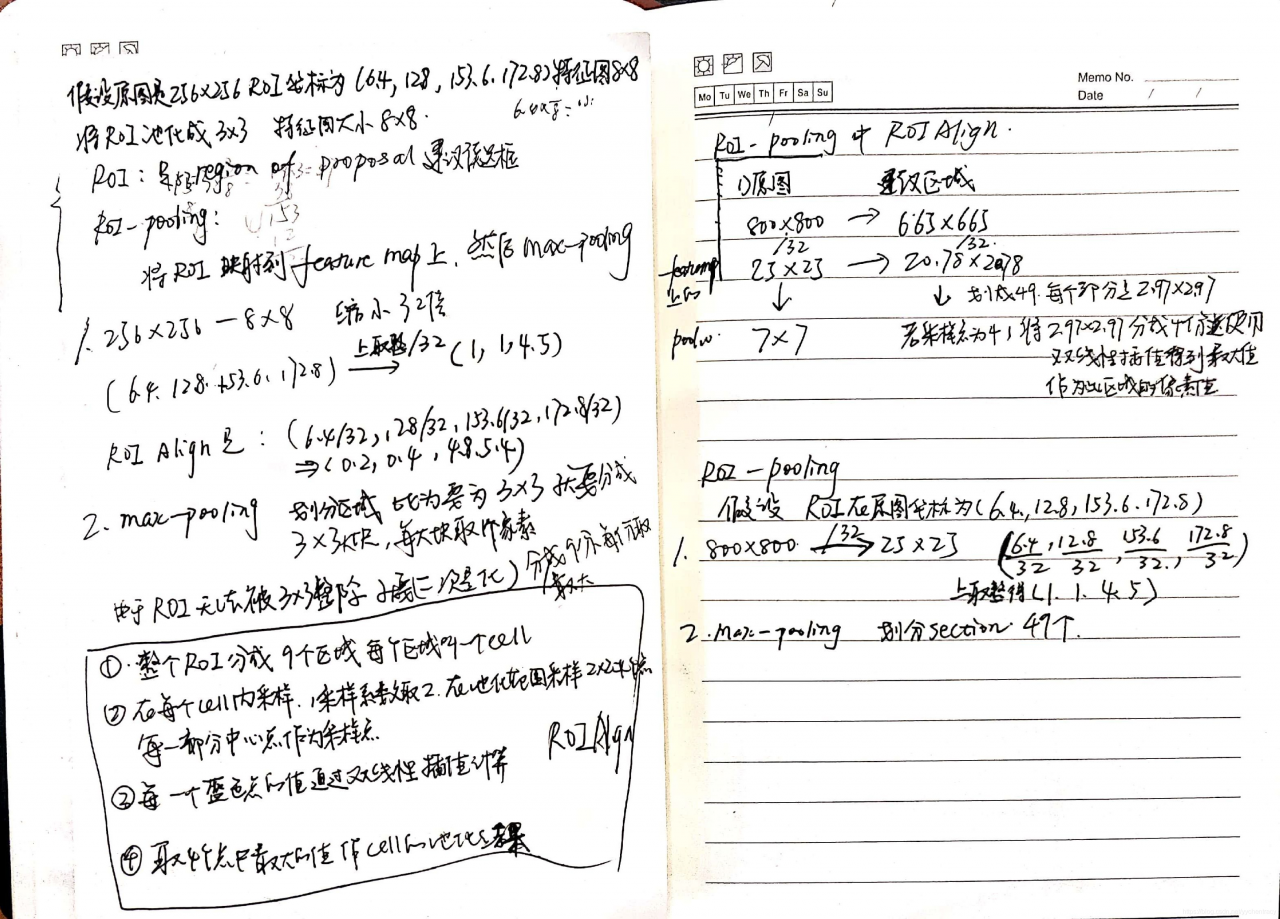 假设原图是256×256 ROI坐标为(6.4, 128, 153.6, 172.8)特征图8×8
将ROI池化成3×3 特征图大小8×8.
ROI: region of proposal 建议候选框
ROI-pooling:
将ROI映射到feature map上, 然后max-pooling
1. 256×256 — 8×8 缩小32倍
(6.4. 128. 153.6. 172.8) 上取整/32 → (1, 1, 4.5)
ROI Align是: (6.4/32, 128/32, 153.6/32, 172.8/32)
⇒(0.2, 0.4, 4.8, 5.4)
2. max-pooling 划分区域 比为要为3×3 就要分成
3×3 每大块取1个像素
由于ROI无法被3×3整除 (第二次量化) 分成9份 每份取
最大
① 整个ROI分成9个区域 每个区域叫一个cell
② 在每个cell内采样. 采样系数取2. 在池化范围采样2×2 4个点
每一部分中心点作为采样点
ROI Align
③ 每一个蓝色点的值通过双线性插值计算
④ 取4个点中最大的值作cell的池化结果
Memo No.
Mo Tu We Th Fr Sa Su
Date / /
ROI-pooling 中 ROI Align.
1)原图 建议区域
800×800 → 665×665
/32 /32.
25×25 → 20.78×20.78
↓ ↓ 划成49. 每个部分是2.97×2.97
7×7 若采样点为4, 将2.97×2.97分成4个部分使用
双线性插值得到最大值
作为此区域的像素值
ROI-pooling
假设 ROI在原图坐标为(6.4, 12.8, 153.6. 172.8)
1. 800×800 /32 → 25×25 (6.4/32, 12.8/32, 153.6/32, 172.8/32)
上取整得(1. 1. 4.5)
2. max-pooling 划分section 49个.